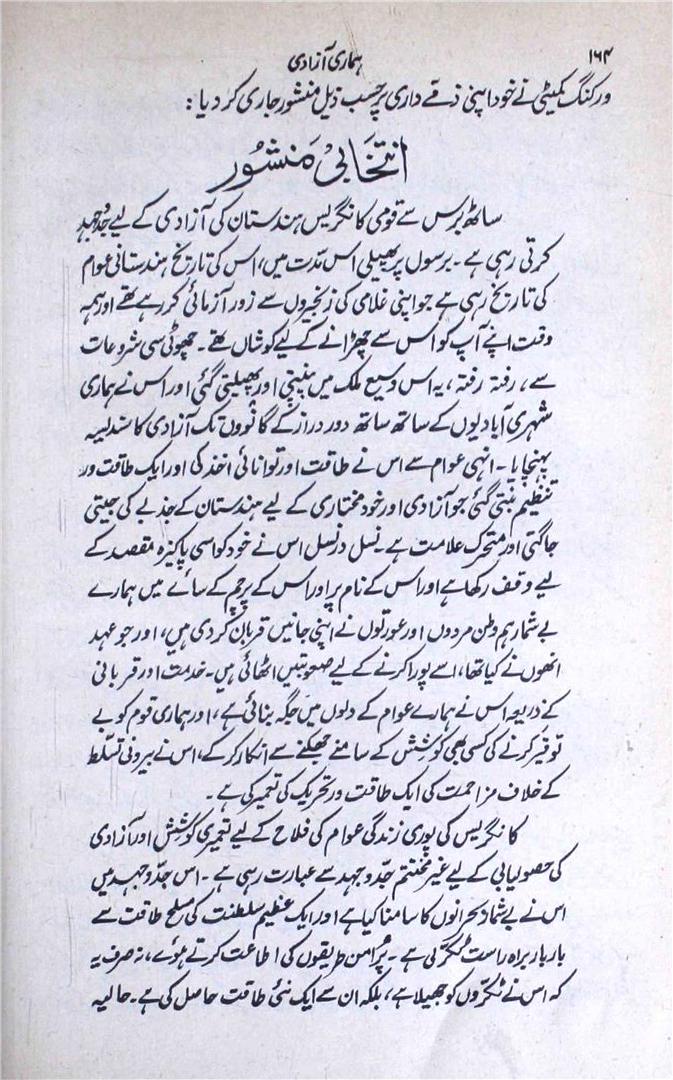 ۱۶۴
ہماری آزادی
ورکنگ کمیٹی نے خود اپنی ذمے داری پر حسب ذیل منشور جاری کر دیا:
انتخابی منشور
ساٹھ برس سے قومی کانگریس ہندستان کی آزادی کے لیے جدوجہد
کرتی رہی ہے۔ برسوں پر پھیلی اس مدت میں، اس کی تاریخ ہندستانی عوام
کی تاریخ رہی ہے جو اپنی غلامی کی زنجیروں سے زور آزمائی کر رہے تھے اور ہمہ
وقت اپنے آپ کو اس سے چھڑانے کے لیے کوشاں تھے۔ چھوٹی سی شروعات
سے، رفتہ رفتہ، یہ اس وسیع ملک میں پنپتی اور پھیلتی گئی اور اس نے ہماری
شہری آبادیوں کے ساتھ ساتھ دور دراز کے گانووں تک آزادی کا سندیسہ
پہنچایا۔ انہی عوام سے اس نے طاقت اور توانائی اخذ کی اور ایک طاقت ور
تنظیم بنتی گئی جو آزادی اور خود مختاری کے لیے ہندستان کے جذبے کی جیتی
جاگتی اور متحرک علامت ہے۔ نسل در نسل اس نے خود کو اسی پاکیزہ مقصد کے
لیے وقف رکھا ہے اور اس کے نام پر اور اس کے پرچم کے سائے میں ہمارے
بے شمار ہم وطن مردوں اور عورتوں نے اپنی جانیں قربان کر دی ہیں، اور جو عہد
انھوں نے کیا تھا، اسے پورا کرنے کے لیے صعوبتیں اٹھائی ہیں۔ خدمت اور قربانی
کے ذریعہ اس نے ہمارے عوام کے دلوں میں جگہ بنائی ہے، اور ہماری قوم کو بے
توقیر کرنے کی کسی بھی کوشش کے سامنے جھکنے سے انکار کر کے، اس نے بیرونی تسلط
کے خلاف مزاحمت کی ایک طاقت ور تحریک کی تعمیر کی ہے۔
کانگریس کی پوری زندگی عوام کی فلاح کے لیے تعمیری کوشش اور آزادی
کی حصولیابی کے لیے غیر مختتم جدوجہد سے عبارت رہی ہے۔ اس جدوجہد میں
اس نے بے شمار بحرانوں کا سامنا کیا ہے اور ایک عظیم سلطنت کی مسلح طاقت سے
بار بار براہ راست ٹکر لی ہے۔ پر امن طریقوں کی اطاعت کرتے ہوئے، نہ صرف یہ
کہ اس نے ٹکروں کو جھیلا ہے، بلکہ ان سے ایک نئی طاقت حاصل کی ہے۔ حالیہ